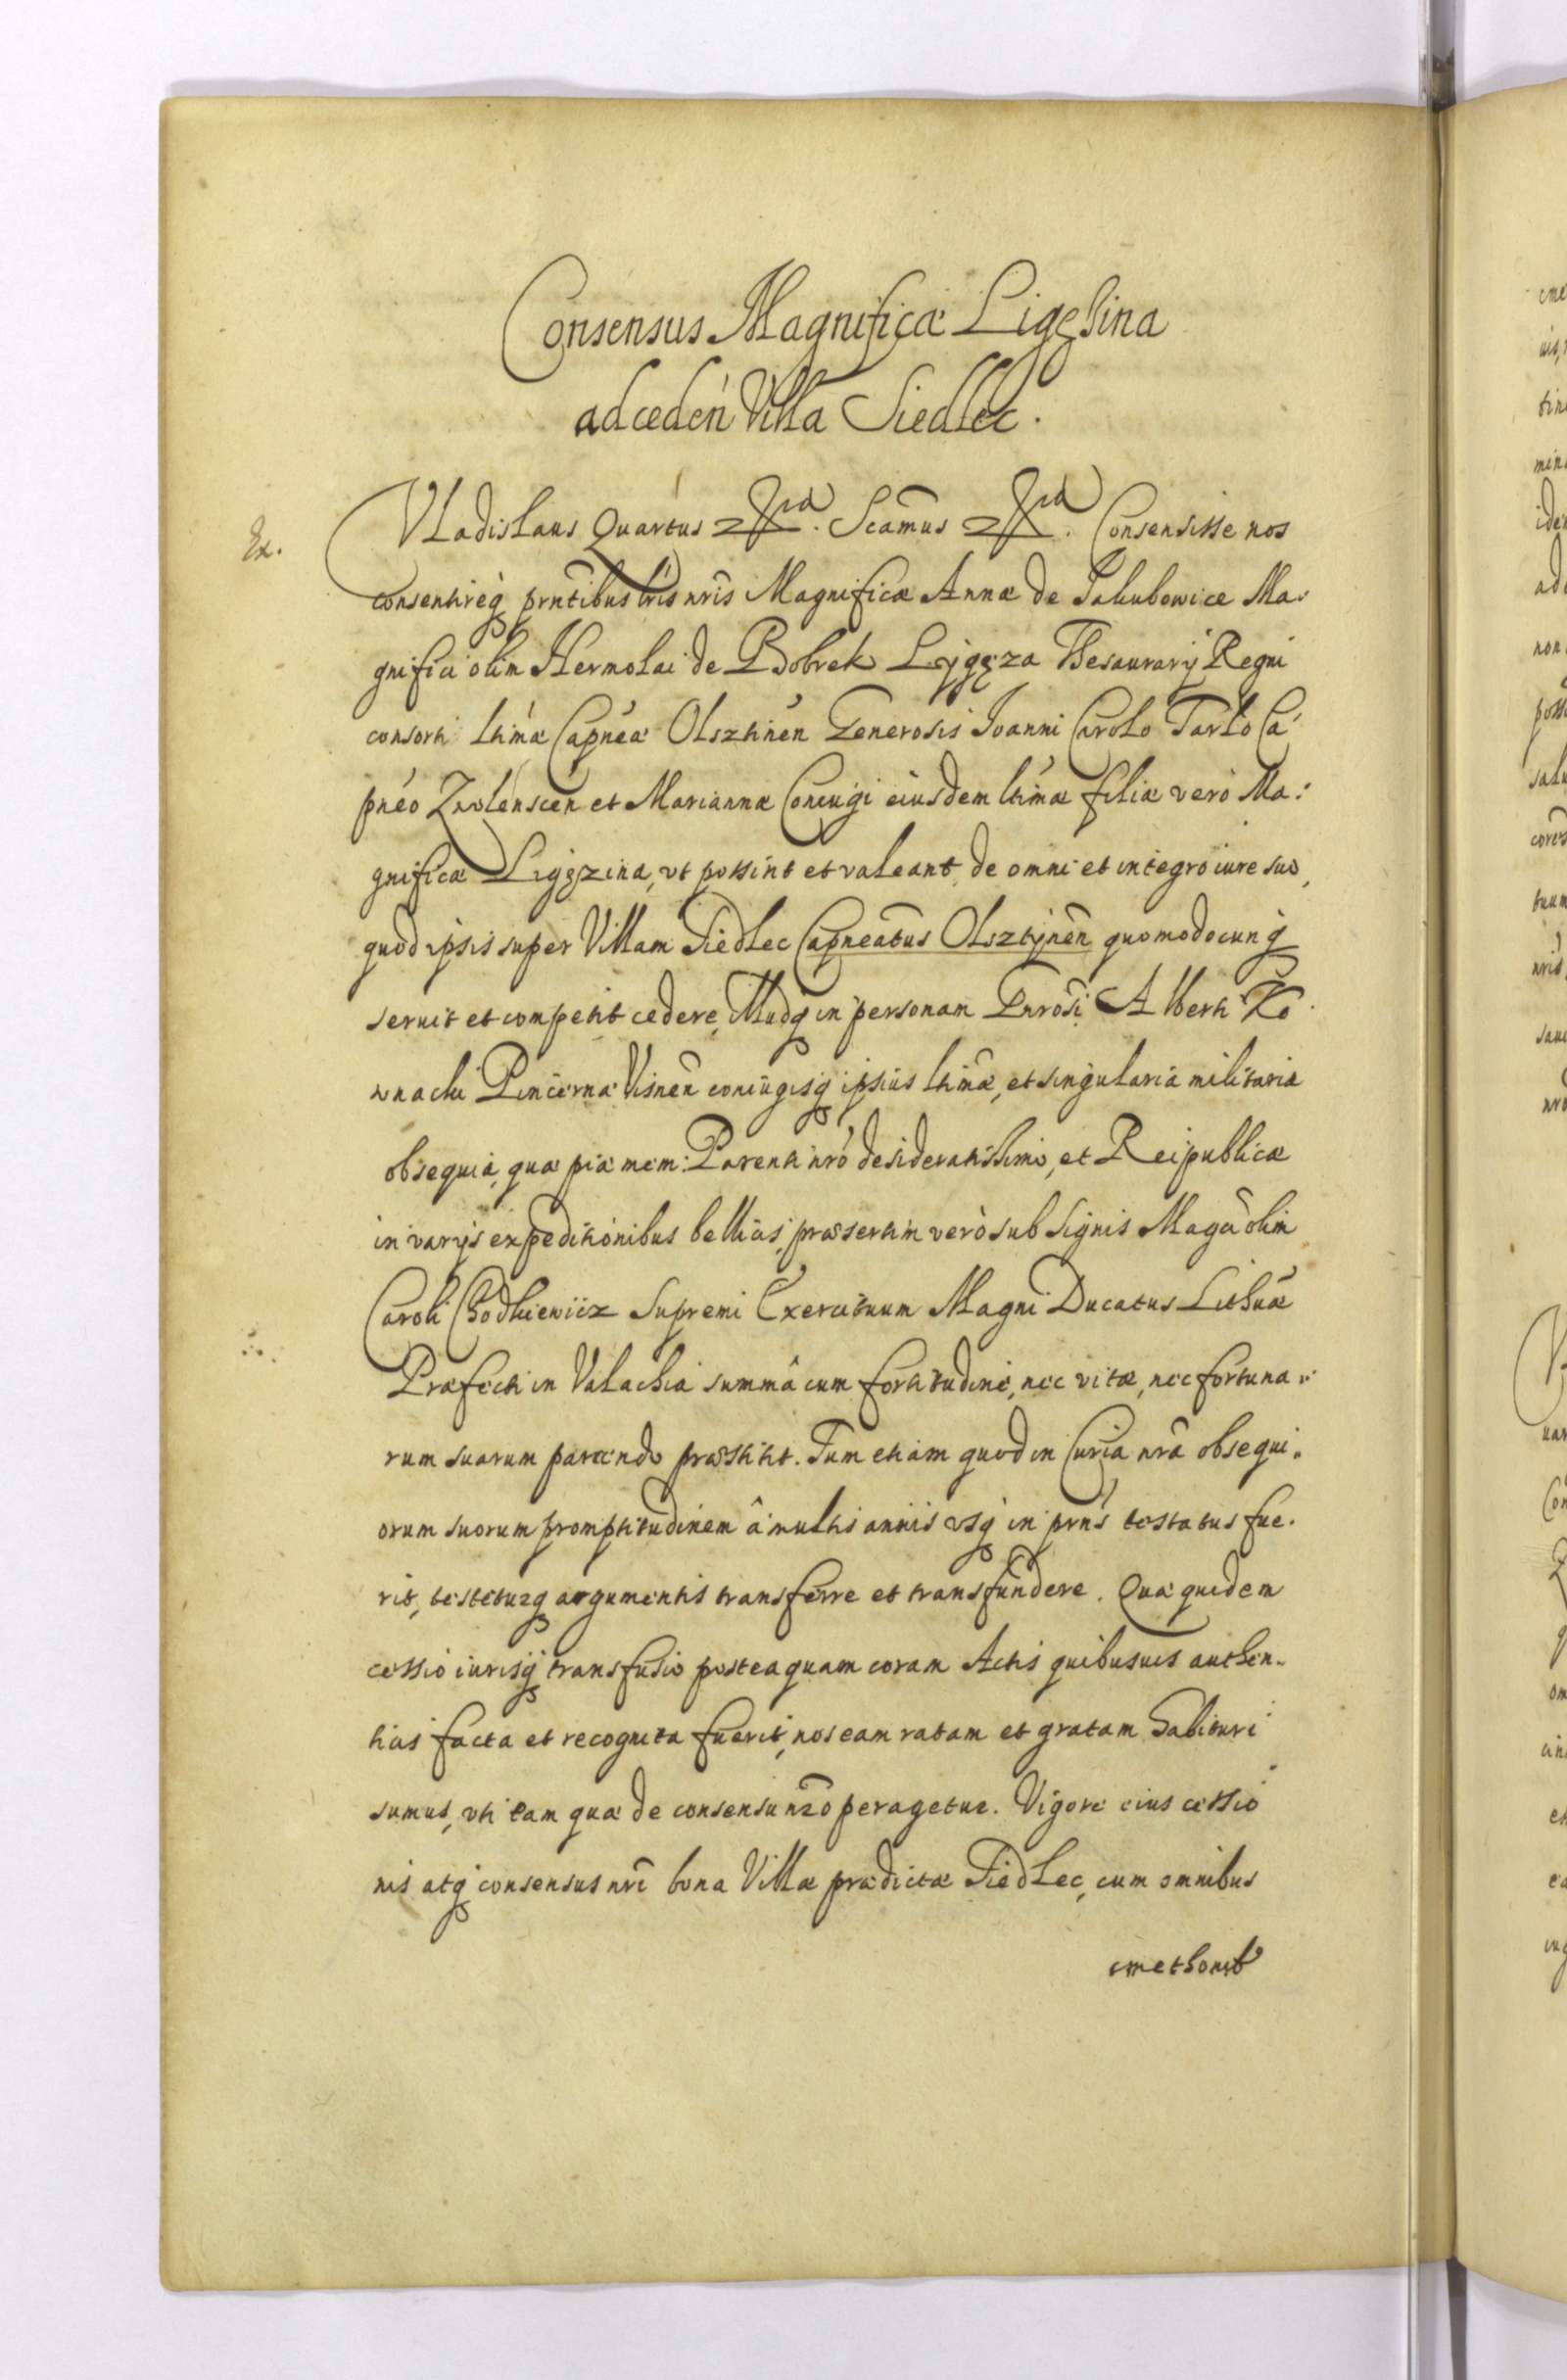 Consensus Magnificæ Ligęzina
ad cedeń Villa Siedlec.
Ex.
Vladislaus Quartus Scãmus Consensisse nos
consentireq̃ prñtibus lr̃is nr̃is Magnificæ Annæ de Jakubowice Ma-
gnifici olim Hermolai de Bobrek Lygęza Thesaurarij Regni
consorti lt̃imæ Capn̄eæ Olsztineń Generosis Ioanni Carolo Tarlo Ca-
pnéo Zwolensceń et Mariannæ Coniugi eiusdem lt̃imæ filiæ vero Ma:
gnificæ Ligęzina, vt possint et valeant de omni et integro iure suo,
quod ipsis super Villam Siedlec Capneatus Olsztyneñ quomodocunq̃
seruit et competit cedere, illudq̃ in personam Gnrosi Alberti Ko
wnacki Pincernæ Visneñ coniugisq̃ ipsius lt̃imæ, et singularia militaria
obsequia, quæ piæ mem: Parenti nrõ desideratissimo, et Reipublicæ
in varijs expeditionibus bellicis, præsertim verò sub signis Magci olim
Caroli Chodkiewicz Supremi Exercituum Magni Ducatus Lithuæ
Præfecti in Valachia summâ cum fortitudine, nec vitæ, nec fortuna-
rum suarum parcendo præstitit. Tum etiam quod in Curia nrã obsequi-
orum suorum promptitudinem â multis annis vsq̃ in prns̃ testatus fue-
rit, testeturq̃ argumentis transferre et transfundere. Quæ quidem
cessio iurisq̃ transfusio posteaquam coram Actis quibusuis authen-
ticis facta et recognita fuerit, nos eam ratam et gratam habituri
sumus, vti eam quæ de consensu nrõ peragetur. Vigore eius cessio
nis atq̃ consensus nrĩ bona Villæ prædictæ Siedlec, cum omnibus
cmethonib9